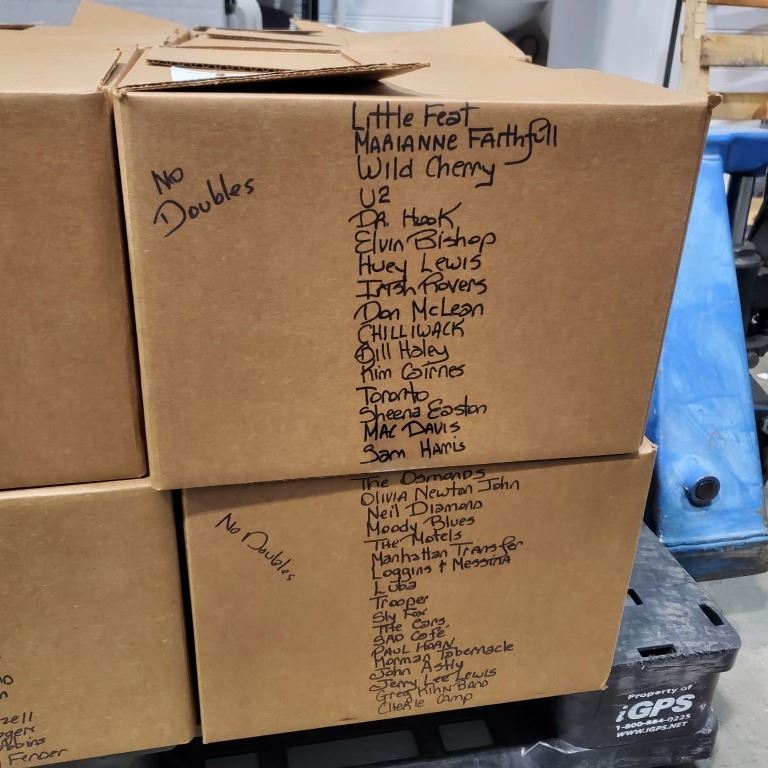 No
Doubles
Little Feat
MARIANNE FAithfull
Wild Cherry
U2
DR. Hook
Elvin Bishop
Huey Lewis
Irish Rovers
Don McLean
CHILLIWACK
Bill Haley
Kim Cairnes
Toronto
Sheena Easton
MAC DAVIS
Sam Harris
No Doubles
The Osmonds
OLIVIA Newton John
Neil Diamond
Moody Blues
The Motels
Manhattan Transfer
Loggins + Messina
Luba
Trooper
Sly Fox
The Cars
SAD Café
PAUL HAAN
Morman Tabernacle
John Astly
Jerry Lee Lewis
Greg Kihn Band
Cherie Camp
zell
Fender
Property of
iGPS
1-800-884-0225
WWW.IGPS.NET